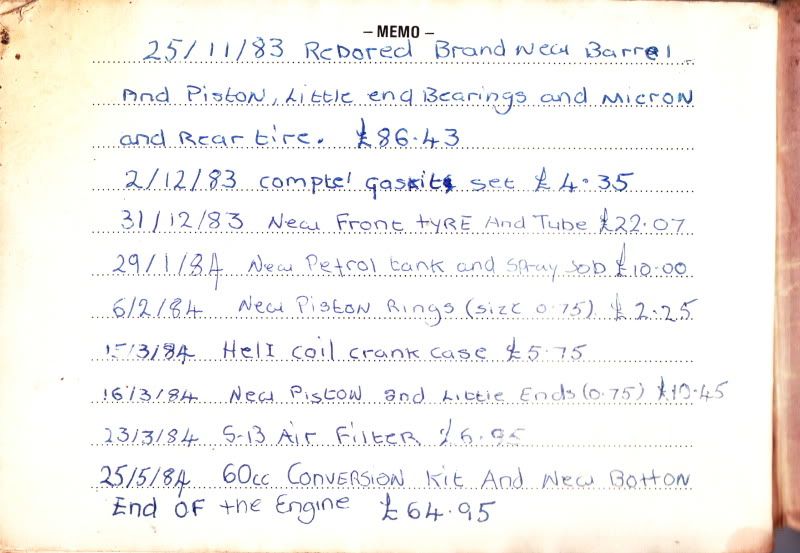 – MEMO –
25/11/83 Rebored Brand New Barrel
And Piston, Little end Bearings and Micron
and Rear tire. £86.43
2/12/83 complet gaskits set £4.35
31/12/83 New Front tyRE And Tube £22.07
29/1/84 New Petrol tank and Spray Job £10.00
6/2/84 New Piston Rings (size 0.75) £2.25
15/3/84 HelI coil crank case £5.75
16/3/84 New Piston and Little Ends (0.75)
23/3/84 S-13 Air Filter
25/5/84 60cc Conversion Kit And New Botton
End OF the Engine £64.95